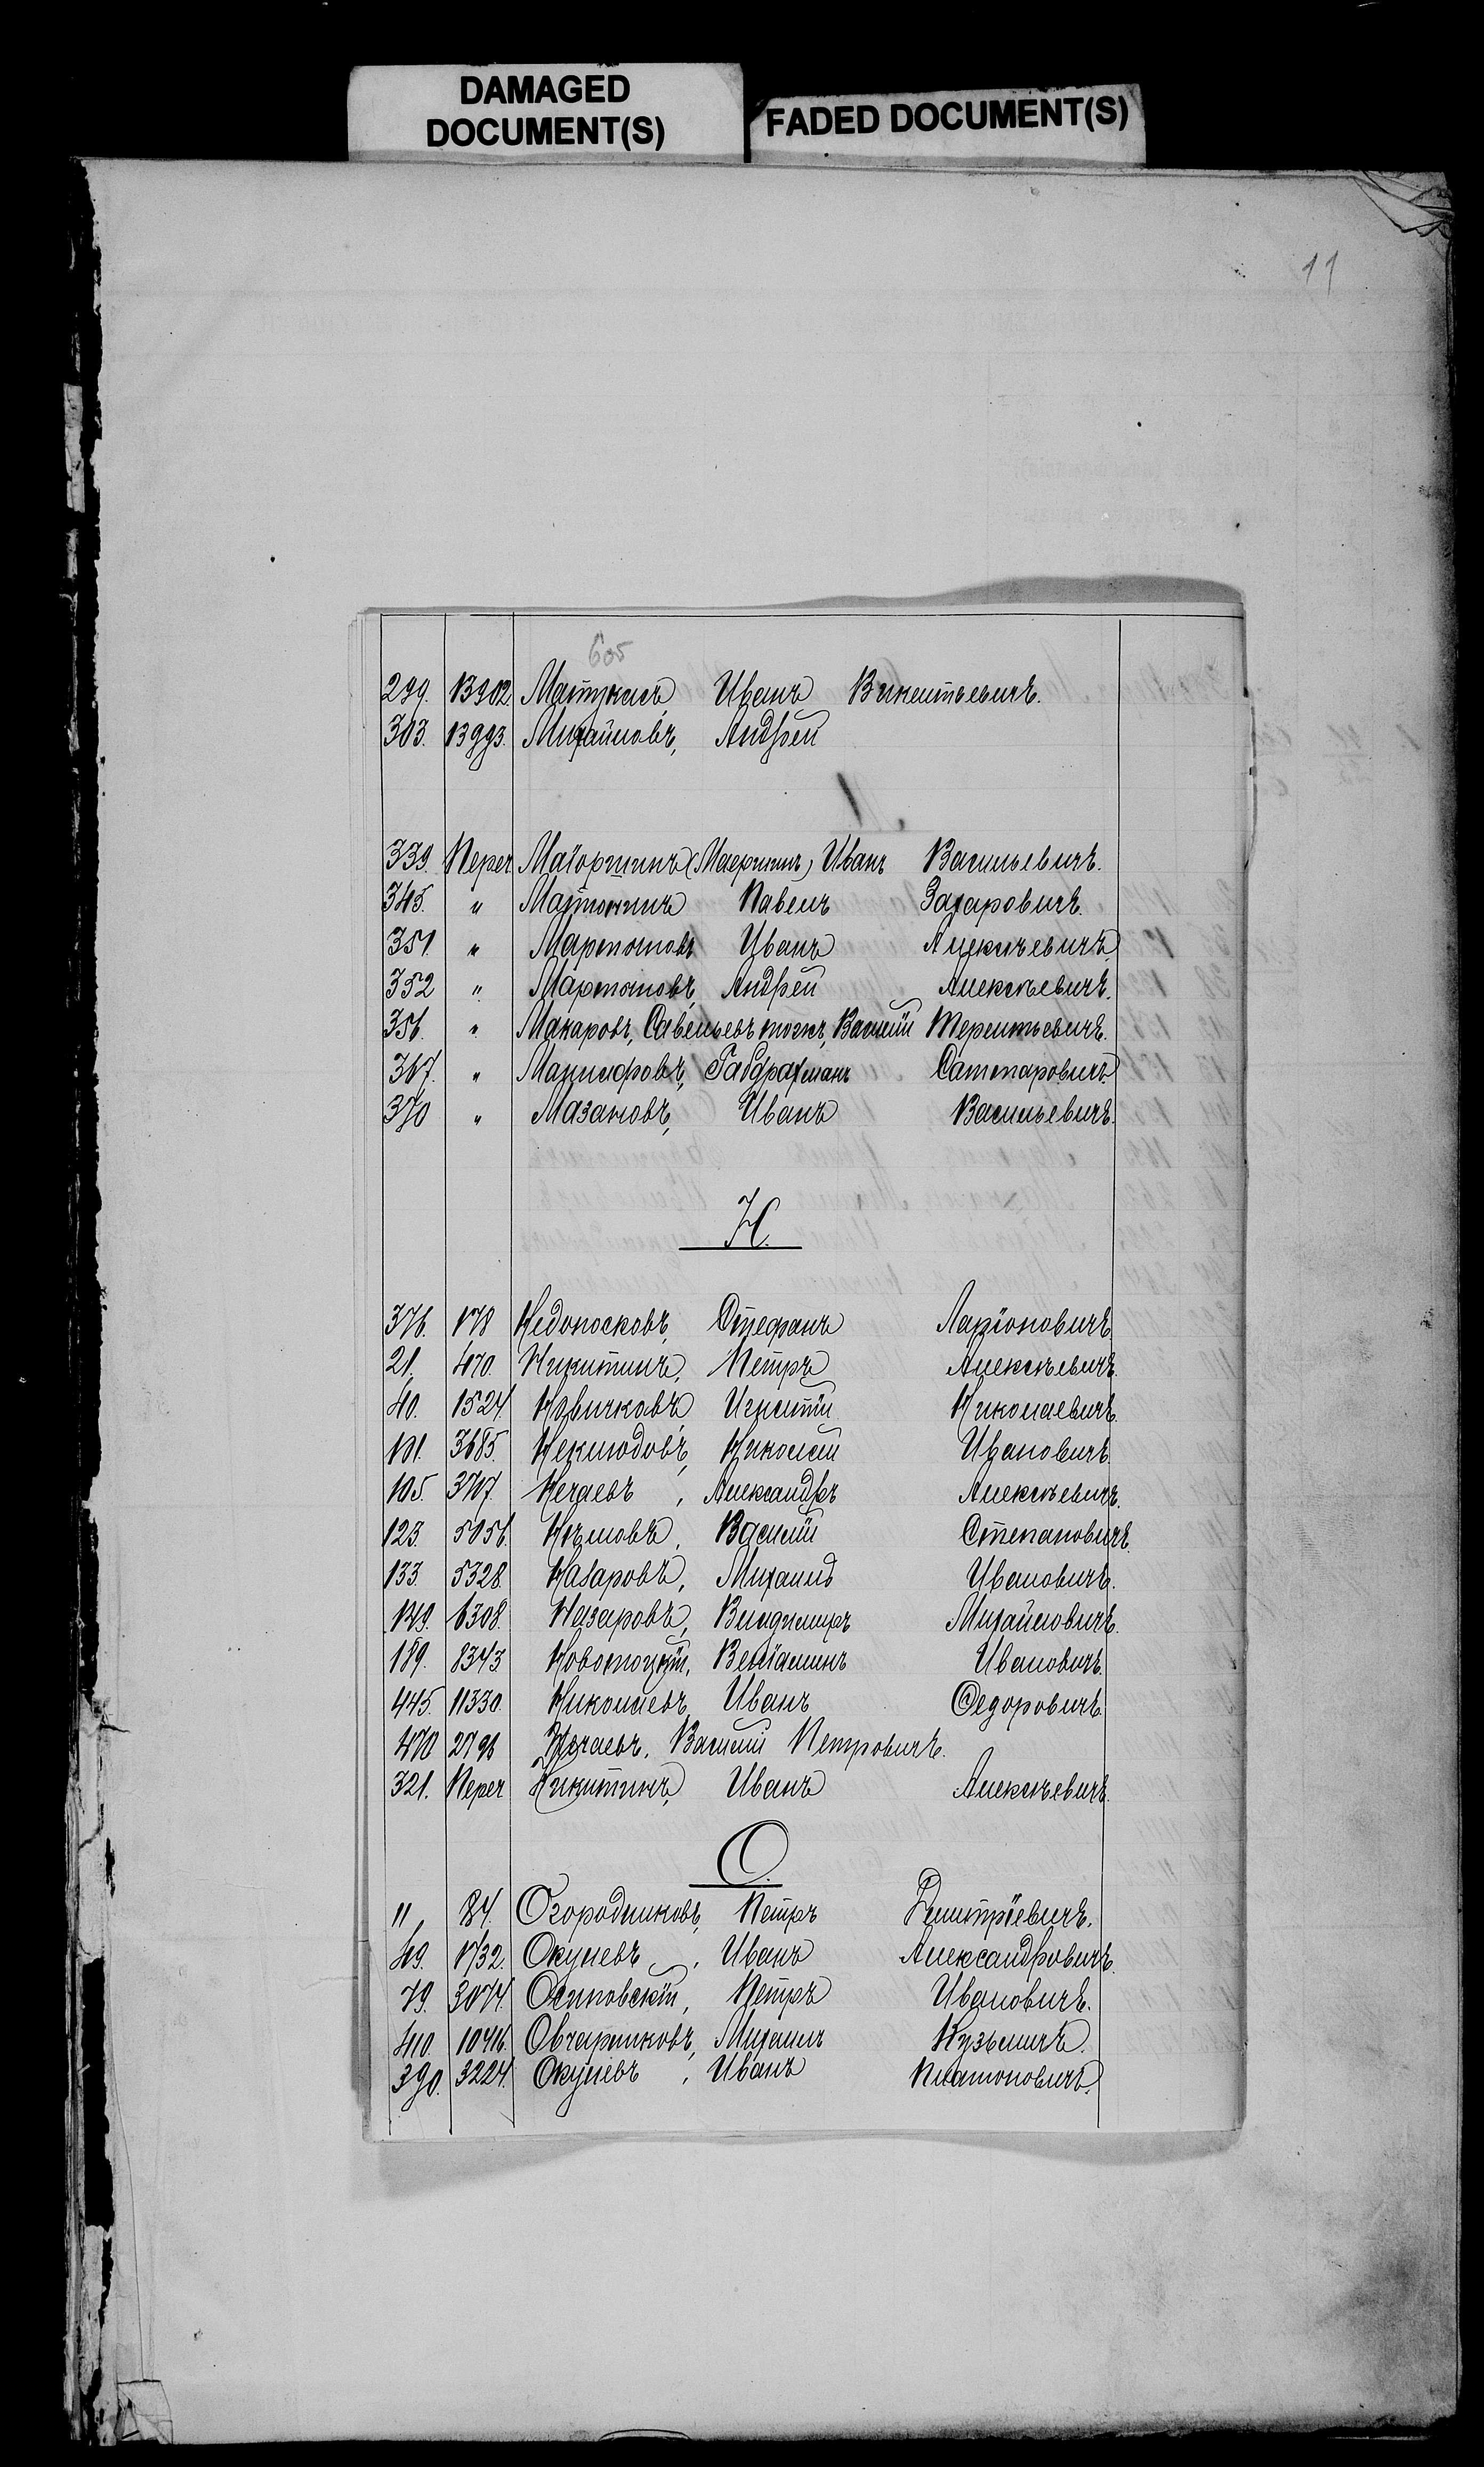 DAMAGED
DOCUMENT(S)
FADED DOCUMENT(S)
11
605
299. 13902. Матукасъ, Иванъ Викентьевичъ.
303. 13993. Михайловъ, Андрей
339. Переч Маіоршинъ (Маершинъ) Иванъ Васильевичъ.
345. " Мартюшинъ Павелъ Захаровичъ.
351. " Мартюшовъ Иванъ Алексѣевичъ
352 " Мартюшовъ, Андрей Алексѣевичъ.
356. " Макаровъ, Савельевъ тожъ, Василій Терентьевичъ.
367. " Маншафровъ, Габдрахманъ Саттаровичъ
370 " Мазановъ, Иванъ Васильевичъ.
Н.
376. 178 Недоносковъ, Стефанъ Ларіоновичъ
21. 470. Никитинъ, Петръ Алексѣевичъ.
40. 1524. Новичковъ Игнатій Николаевичъ.
101. 3685. Неклюдовъ, Николай Ивановичъ.
105. 3707. Нечаевъ, Александръ Алексѣевичъ.
123. 5056. Нѣмовъ, Василій Степановичъ.
133. 5328. Назаровъ, Михаилъ Ивановичъ.
149. 6308. Назаровъ, Владимиръ Михайловичъ.
189. 8343 Веніаминъ Ивановичъ.
445. 11330. Николаевъ, Иванъ Федоровичъ.
470 2796 Нечаевъ, Василій Петровичъ.
321. Переч Никитинъ, Иванъ Алексѣевичъ.
О.
11, 84. Огородниковъ, Петръ Дмитріевичъ.
49. 1732. Окуневъ, Иванъ Александровичъ.
79. 3074. Осиповскій, Петръ Ивановичъ.
410. 10416. Овчарниковъ, Михаилъ Кузьмичъ.
390. 3224. Окуневъ, Иванъ Платоновичъ.